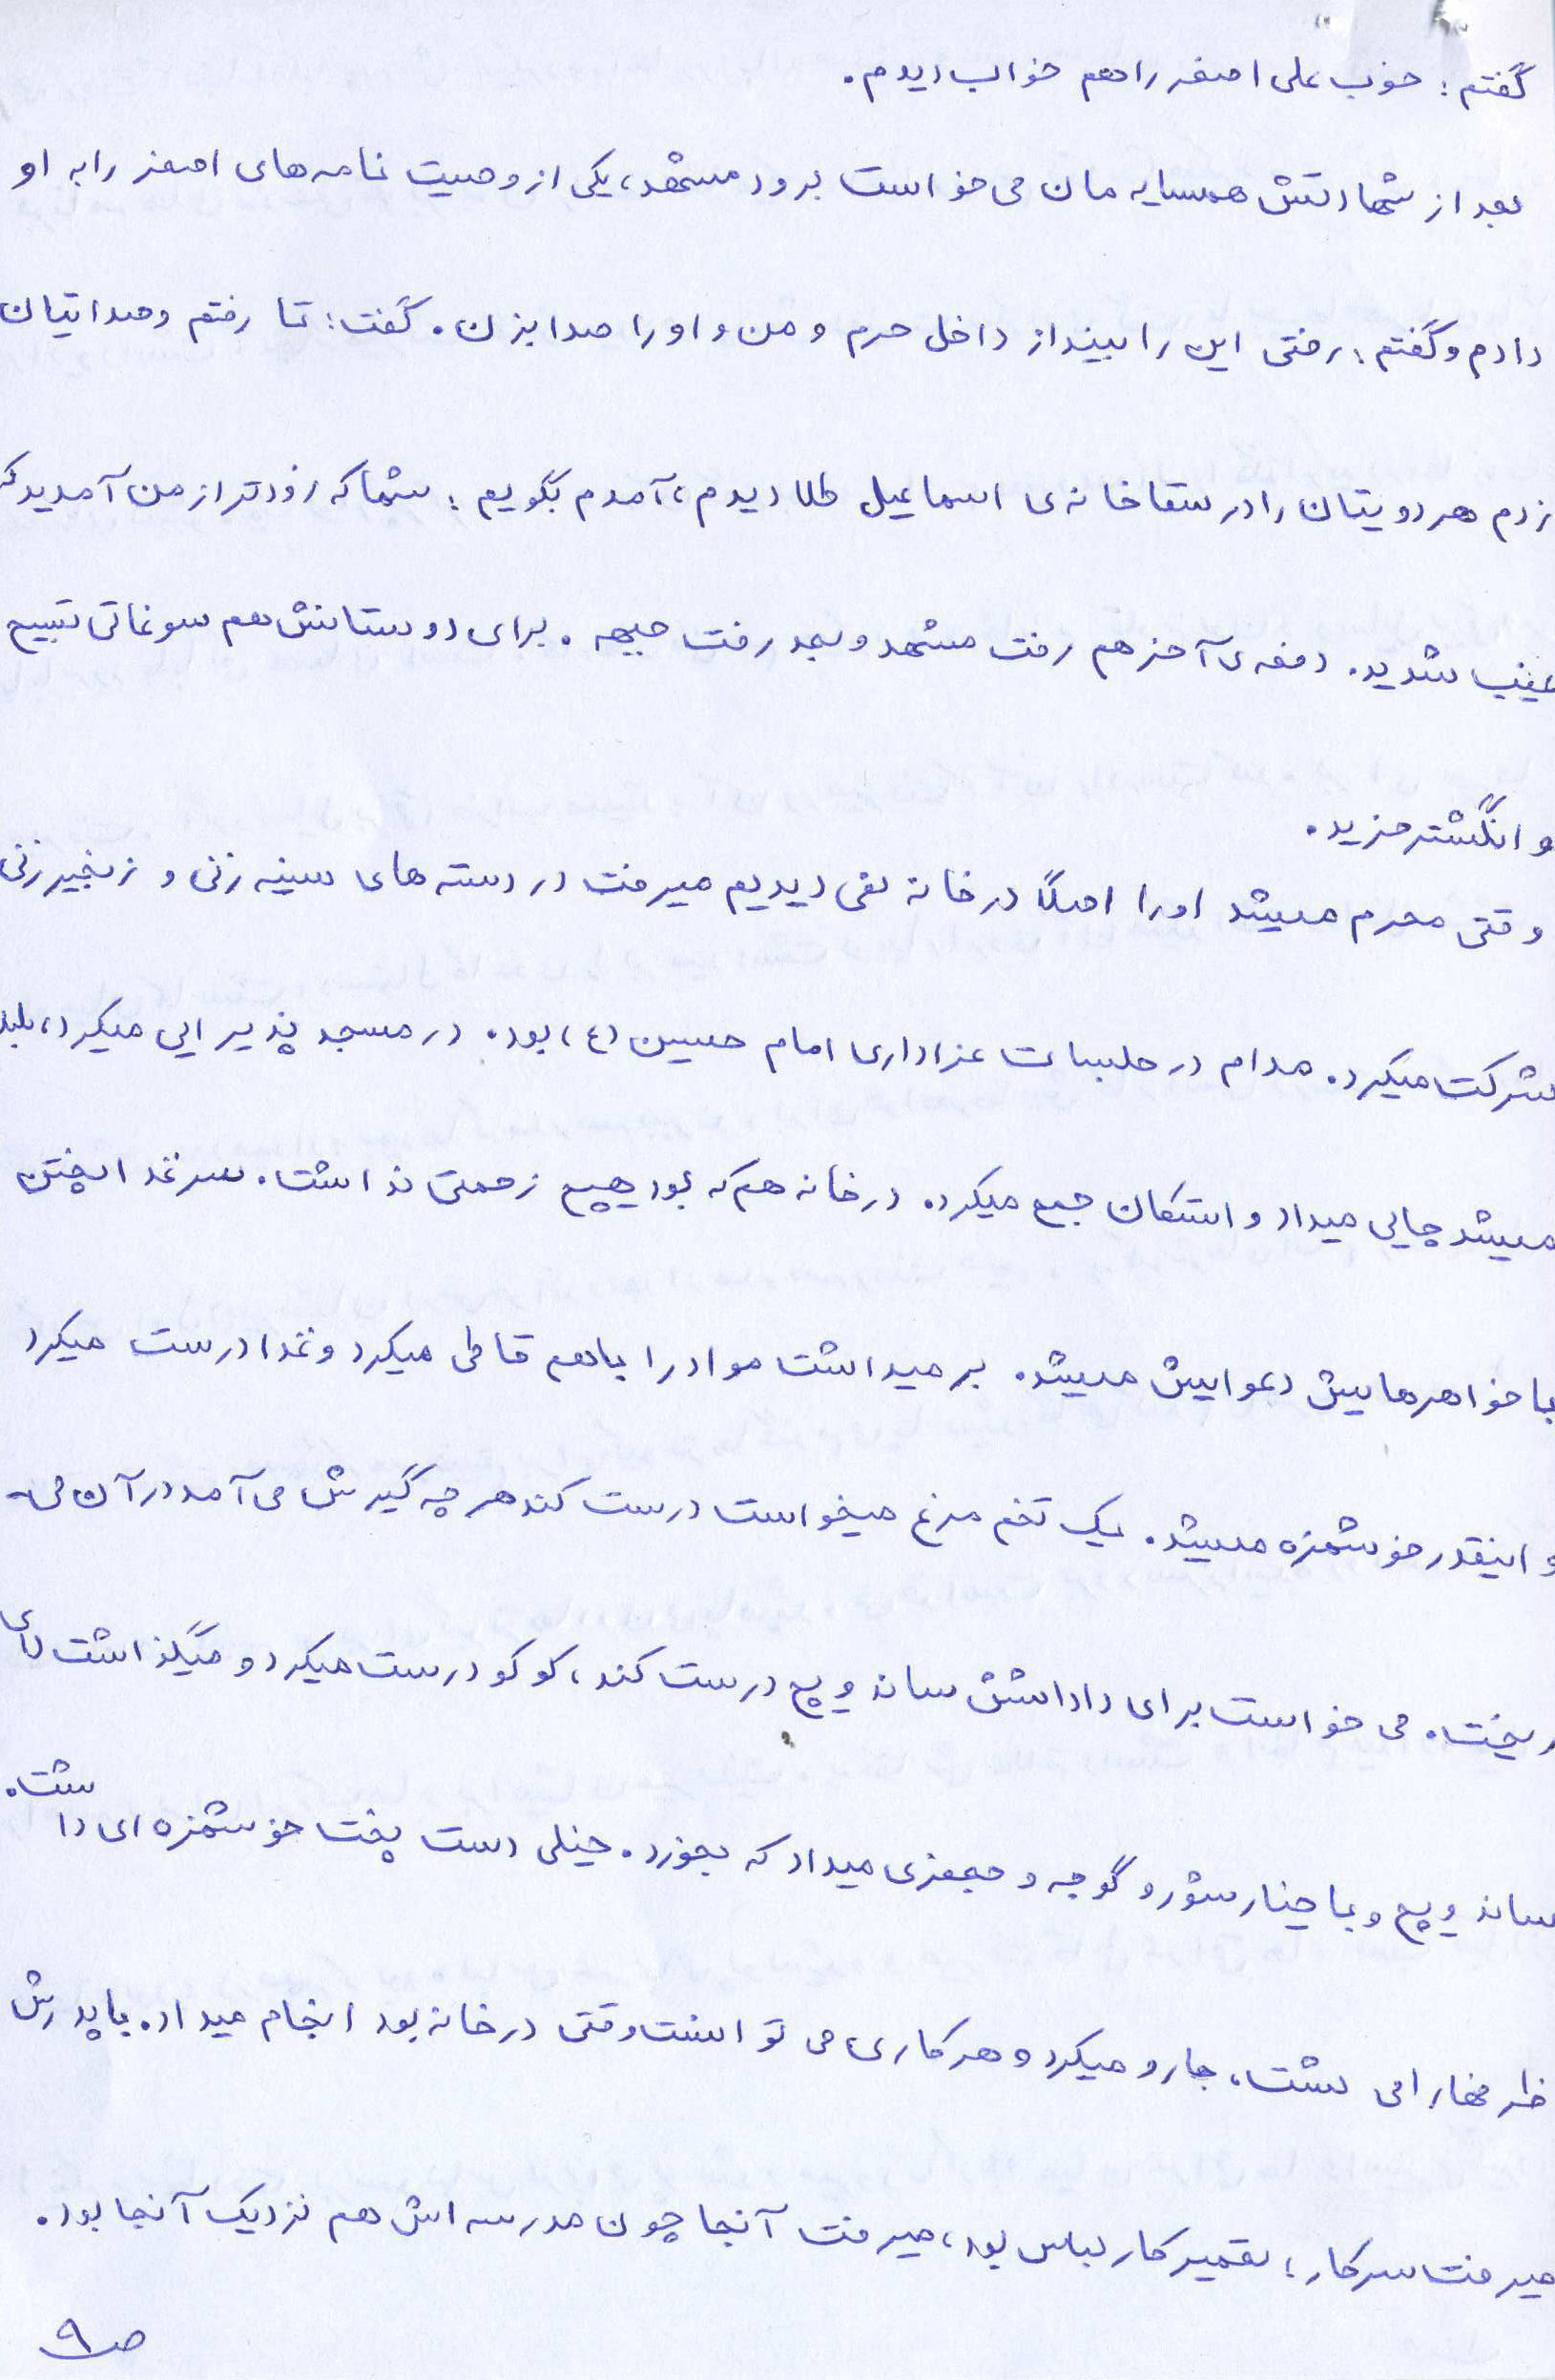 گفتم: خوب علی اصغر را هم خواب دیدم.
بعد از شهادتش همسایه مان می خواست برود مشهد، یکی از وصیت نامه های اصغر را به او
دادم و گفتم: رفتی این را بینداز داخل حرم و من و او را صدا بزن. گفت: تا رفتم و صدایتان
زدم هر دویتان را در سقاخانه ی اسماعیل طلا دیدم، آمدم بگویم: شما که زودتر از من آمدید که
غیب شدید. دفعه ی آخر هم رفت مشهد و بعد رفت جبهه. برای دوستانش هم سوغاتی تسبیح
و انگشتر خرید.
وقتی محرم میشد او را اصلاً در خانه نمی دیدیم میرفت در دسته های سینه زنی و زنجیر زنی
شرکت میکرد. مدام در جلسات عزاداری امام حسین (ع) بود. در مسجد پذیرایی میکرد، بلند
میشد چایی میداد و استکان جمع میکرد. در خانه هم که بود هیچ زحمتی نداشت. سر غذا پختن
با خواهرهایش دعوایش میشد. بر میداشت مواد را با هم قاطی میکرد و غذا درست میکرد
و اینقدر خوشمزه میشد. یک تخم مرغ میخواست درست کند هر چه گیرش می آمد در آن می-
ریخت. می خواست برای داداشش ساندویچ درست کند، کوکو درست میکرد و میگذاشت لای
ساندویچ و با خیارشور و گوجه و جعفری میداد که بخورد. خیلی دست پخت خوشمزه ای داشت.
ظرفها را می شست، جارو میکرد و هر کاری می توانست وقتی در خانه بود انجام میداد. با پدرش
میرفت سر کار؛ تعمیر کار لباس بود، میرفت آنجا چون مدرسه اش هم نزدیک آنجا بود.
ص۹